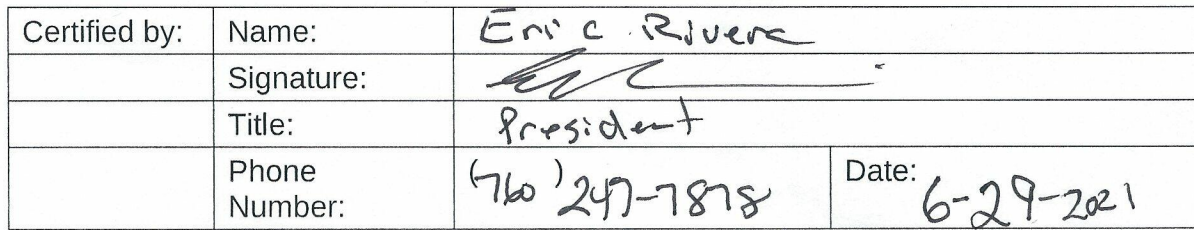 Certified by: Name: Eric Rivera
Signature:
Title: President
Phone Number: (760) 247-7878 Date: 6-29-2021